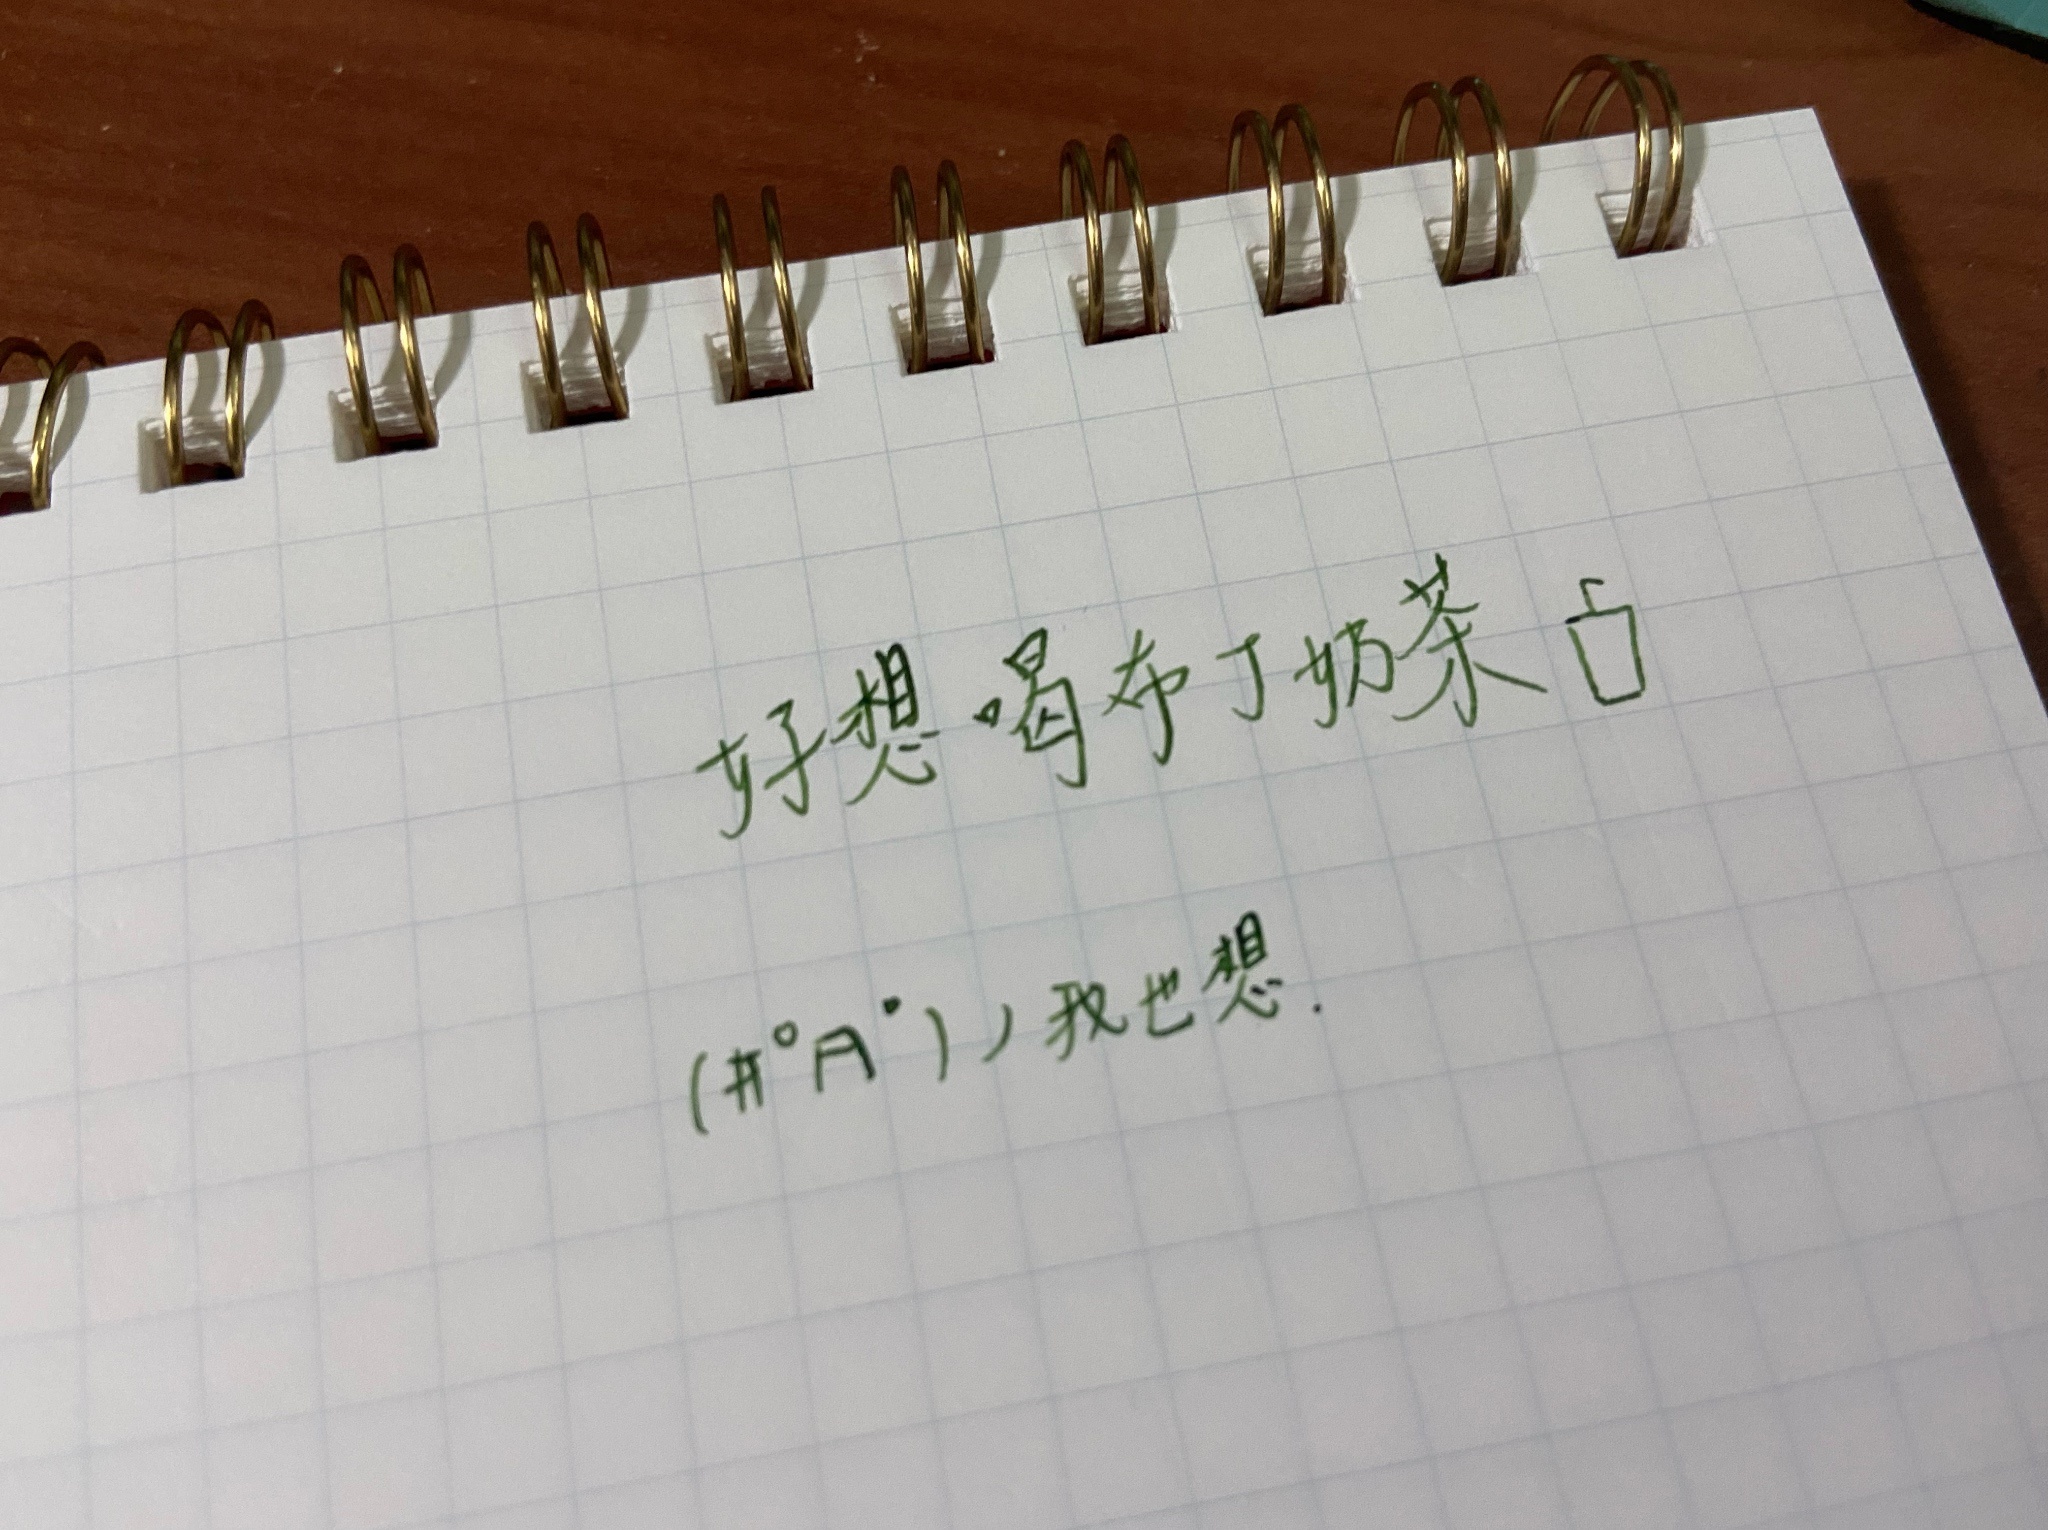 好想喝布丁奶茶
(#°A°)ノ我也想.